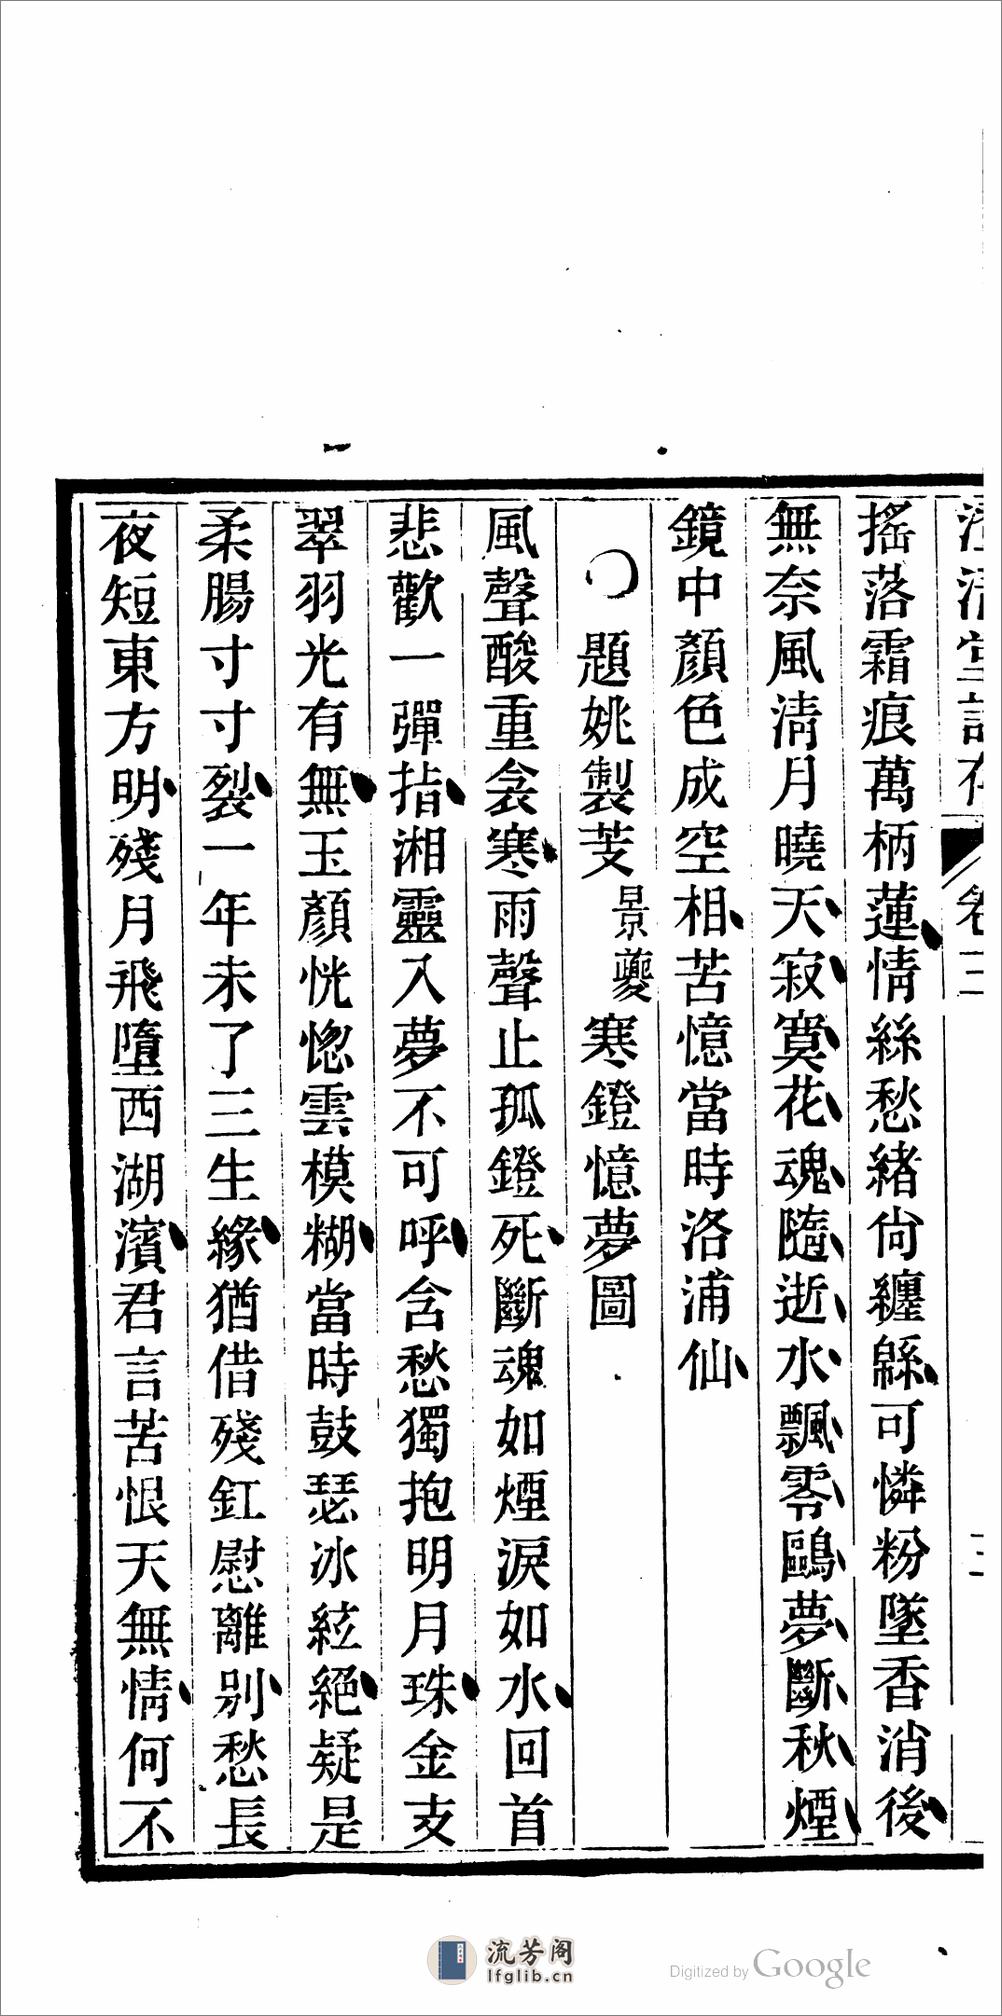 搖落霜痕萬柄蓮情絲愁緒尙纏緜可憐粉墜香消後
無奈風淸月曉天寂寞花魂隨逝水飄零鷗夢斷秋煙
鏡中顏色成空相苦憶當時洛浦仙
題姚製芰景夔寒鐙憶夢圖
風聲酸重衾寒雨聲止孤鐙死斷魂如煙淚如水回首
悲歡一彈指湘靈入夢不可呼含愁獨抱明月珠金支
翠羽光有無玉顏恍惚雲模糊當時鼓瑟冰絃絕疑是
柔腸寸寸裂一年未了三生緣猶借殘釭慰離別愁長
夜短東方明殘月飛墮西湖濱君言苦恨天無情何不
流芳阁
lfglib.cn
Digitized by Google